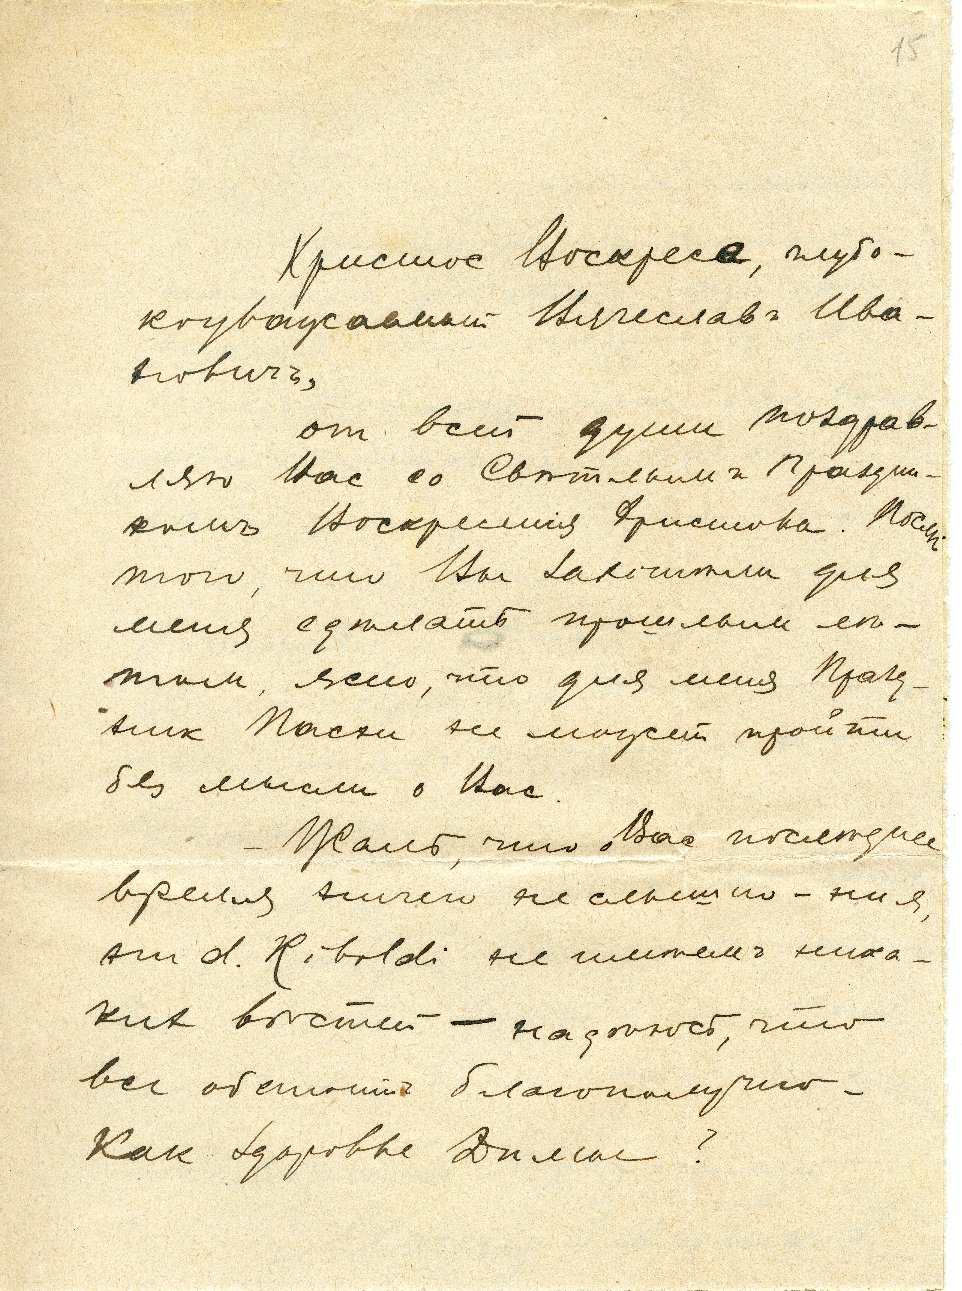 15
Христос Воскресе, глубо-
коуважаемый Вячеславъ Ива-
новичъ,
от всей души поздрав-
ляю Вас со Свѣтлымъ Праздни-
комъ Воскресения Христова. Послѣ
того, что Вы захотѣли для
меня сдѣлать прошлым лѣ-
том, ясно, что для меня Празд-
ник Пасхи не может пройти
без мысли о Вас.
- Жаль, что о Вас послѣднее
время ничего не слышно - ни я,
ни d. Riboldi не имѣемъ ника-
ких вѣстей — надѣюсь, что
все обстоитъ благополучно -
Как здоровье Димы?